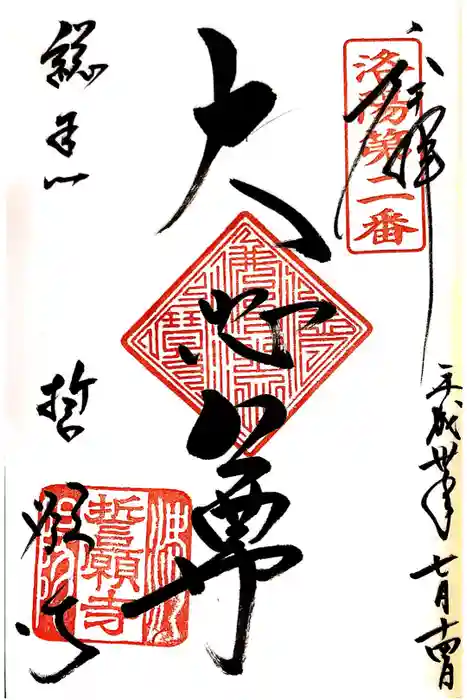 奉拝
洛陽第二番
平成卅年七月十四日
大悲尊
總本山
誓願寺
誓願寺